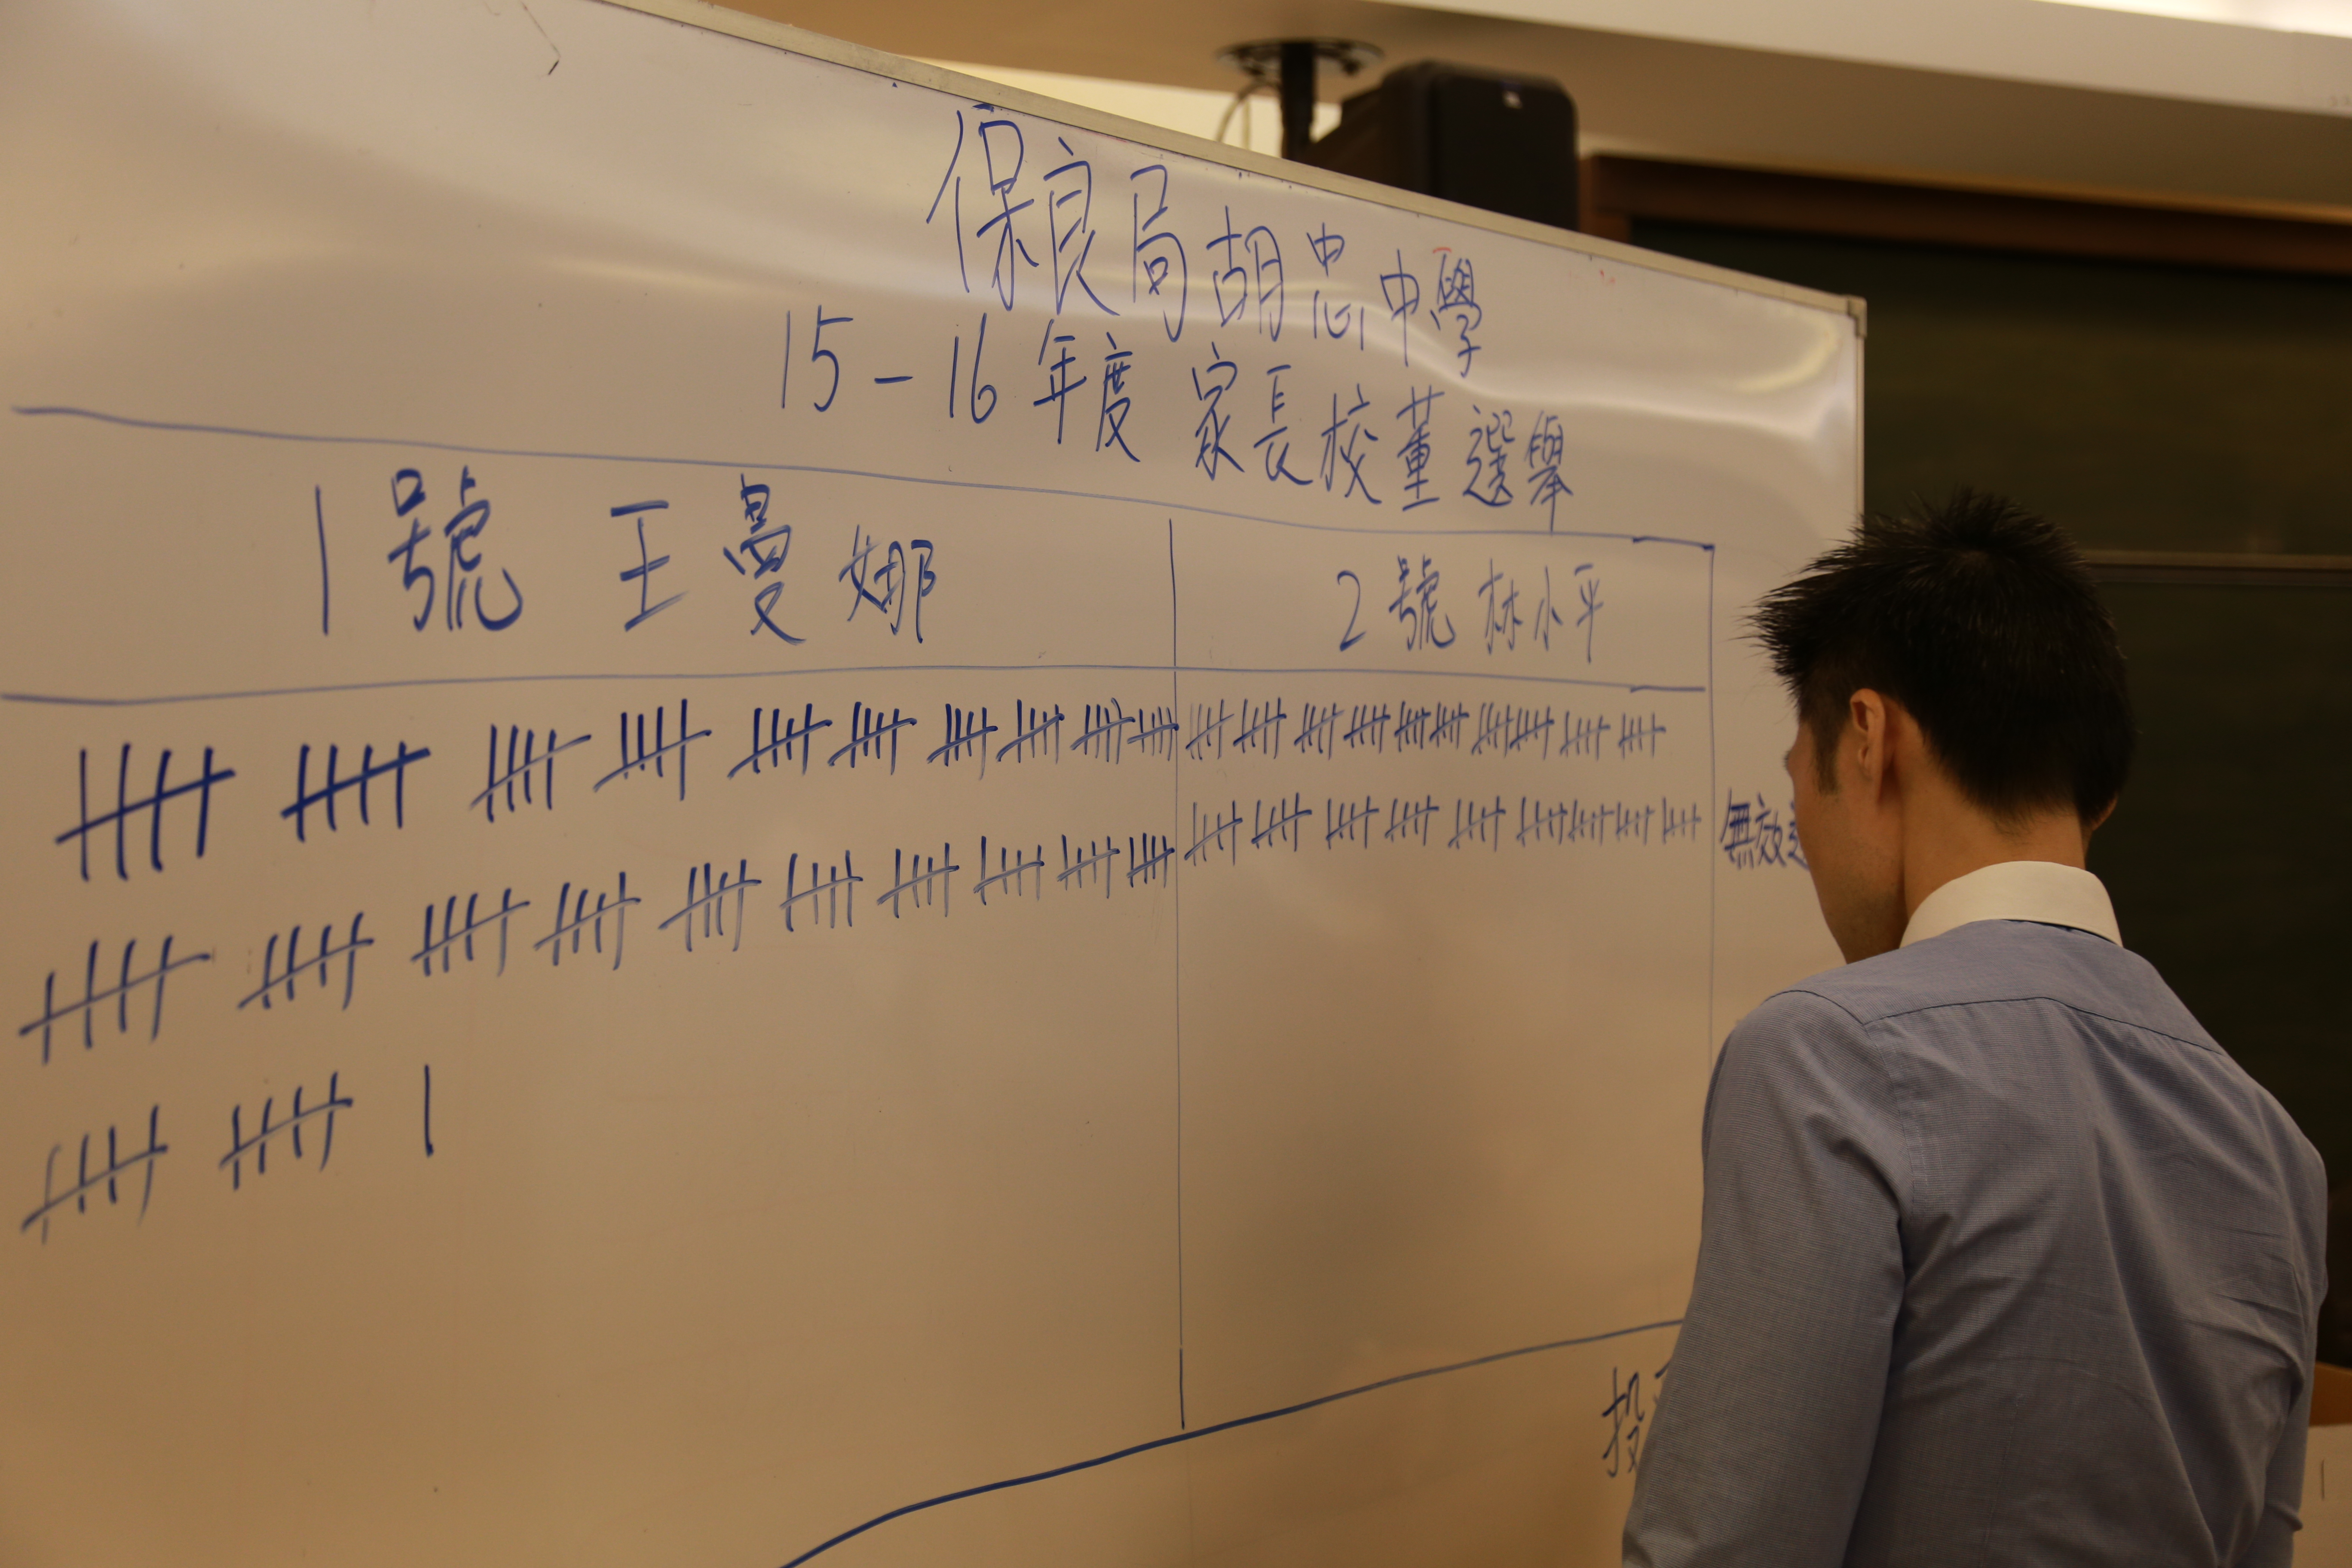 保良局胡忠中學
15-16年度 家長校董選舉
1號 王曼娜
2號 林小平
無效
投